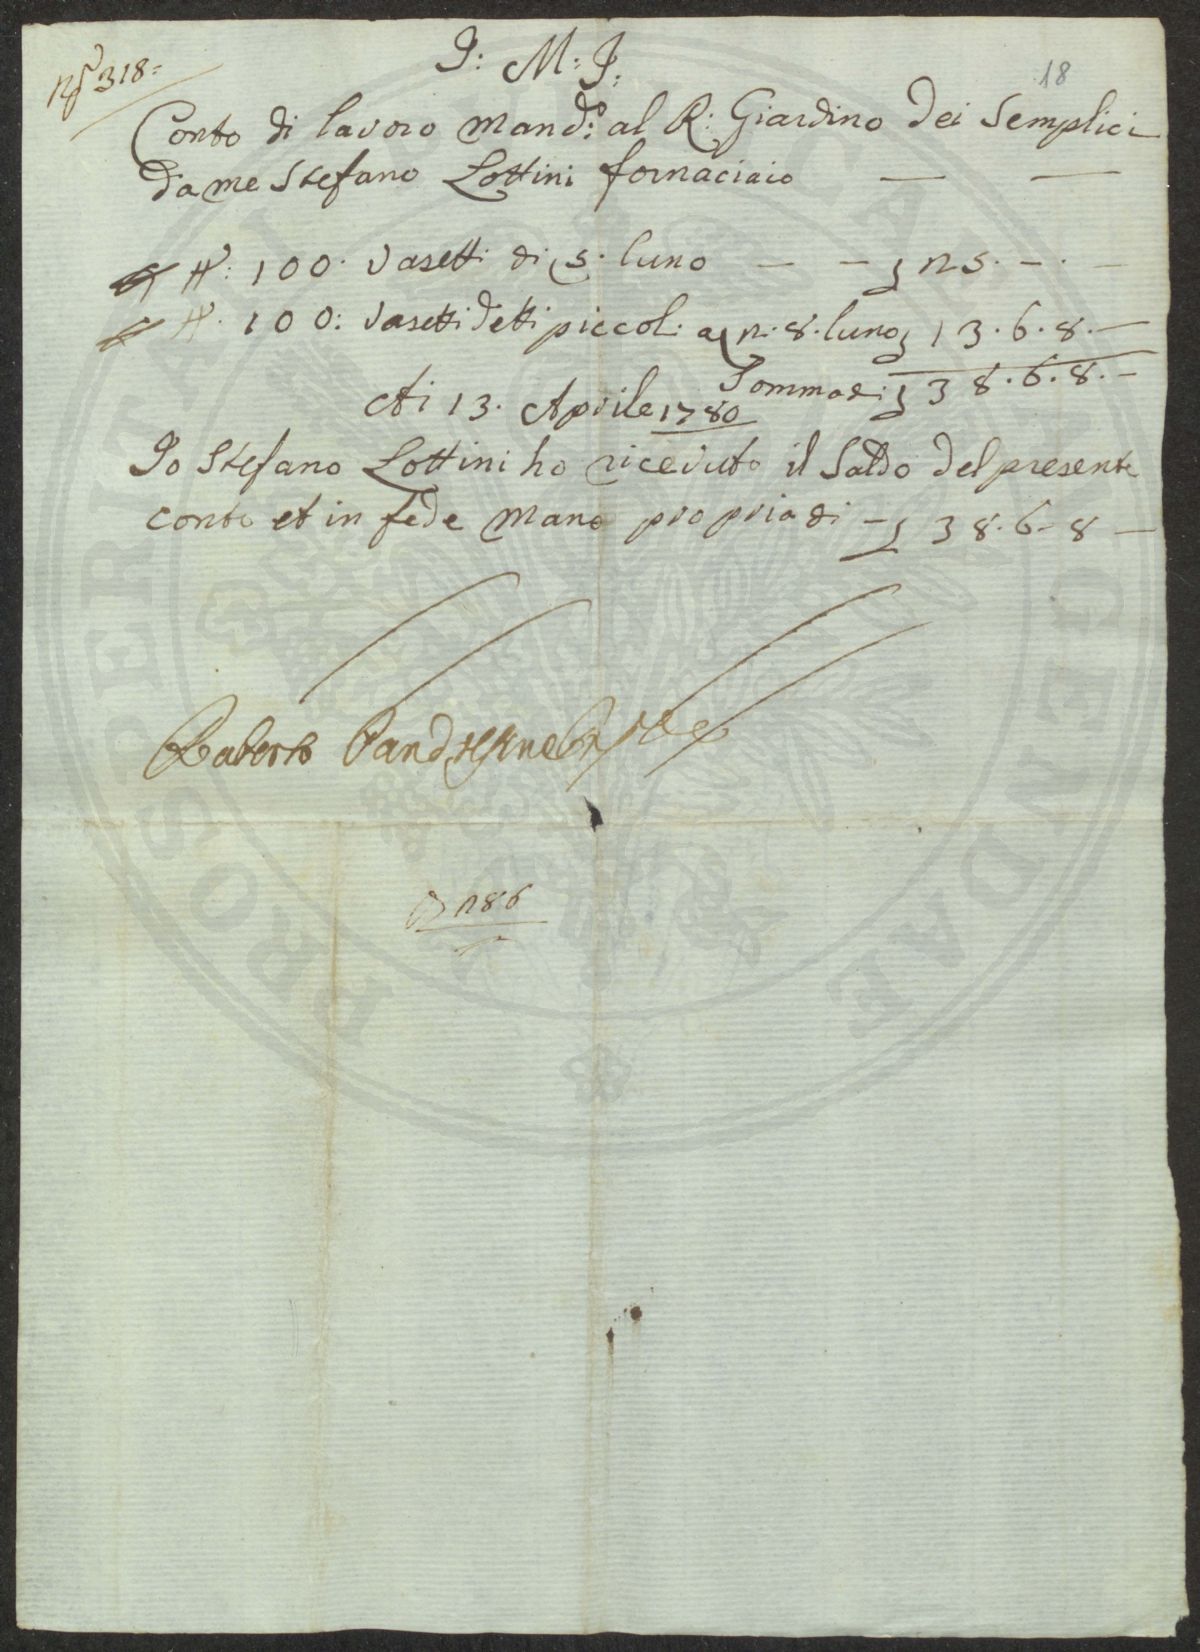 N.º 318=
J: M: J:
18
Conto di lavoro Mand:º al R: Giardino dei Semplici
da me Stefano Lottini fornaciaio — —
N: 100. Vasetti di 5. luno — — £ 25. — . —
N. 100: Vasetti detti piccol: a £ 2. 8. luno £ 13. 6. 8. —
Somma di: £ 38. 6. 8. —
Ai 13. Aprile 1780
Io Stefano Lottini ho ricevuto il Saldo del presente
conto et in fede Mano propria di — £ 38. 6. 8 —
286
PROSPERITATI PUBLICAE AUGENDAE